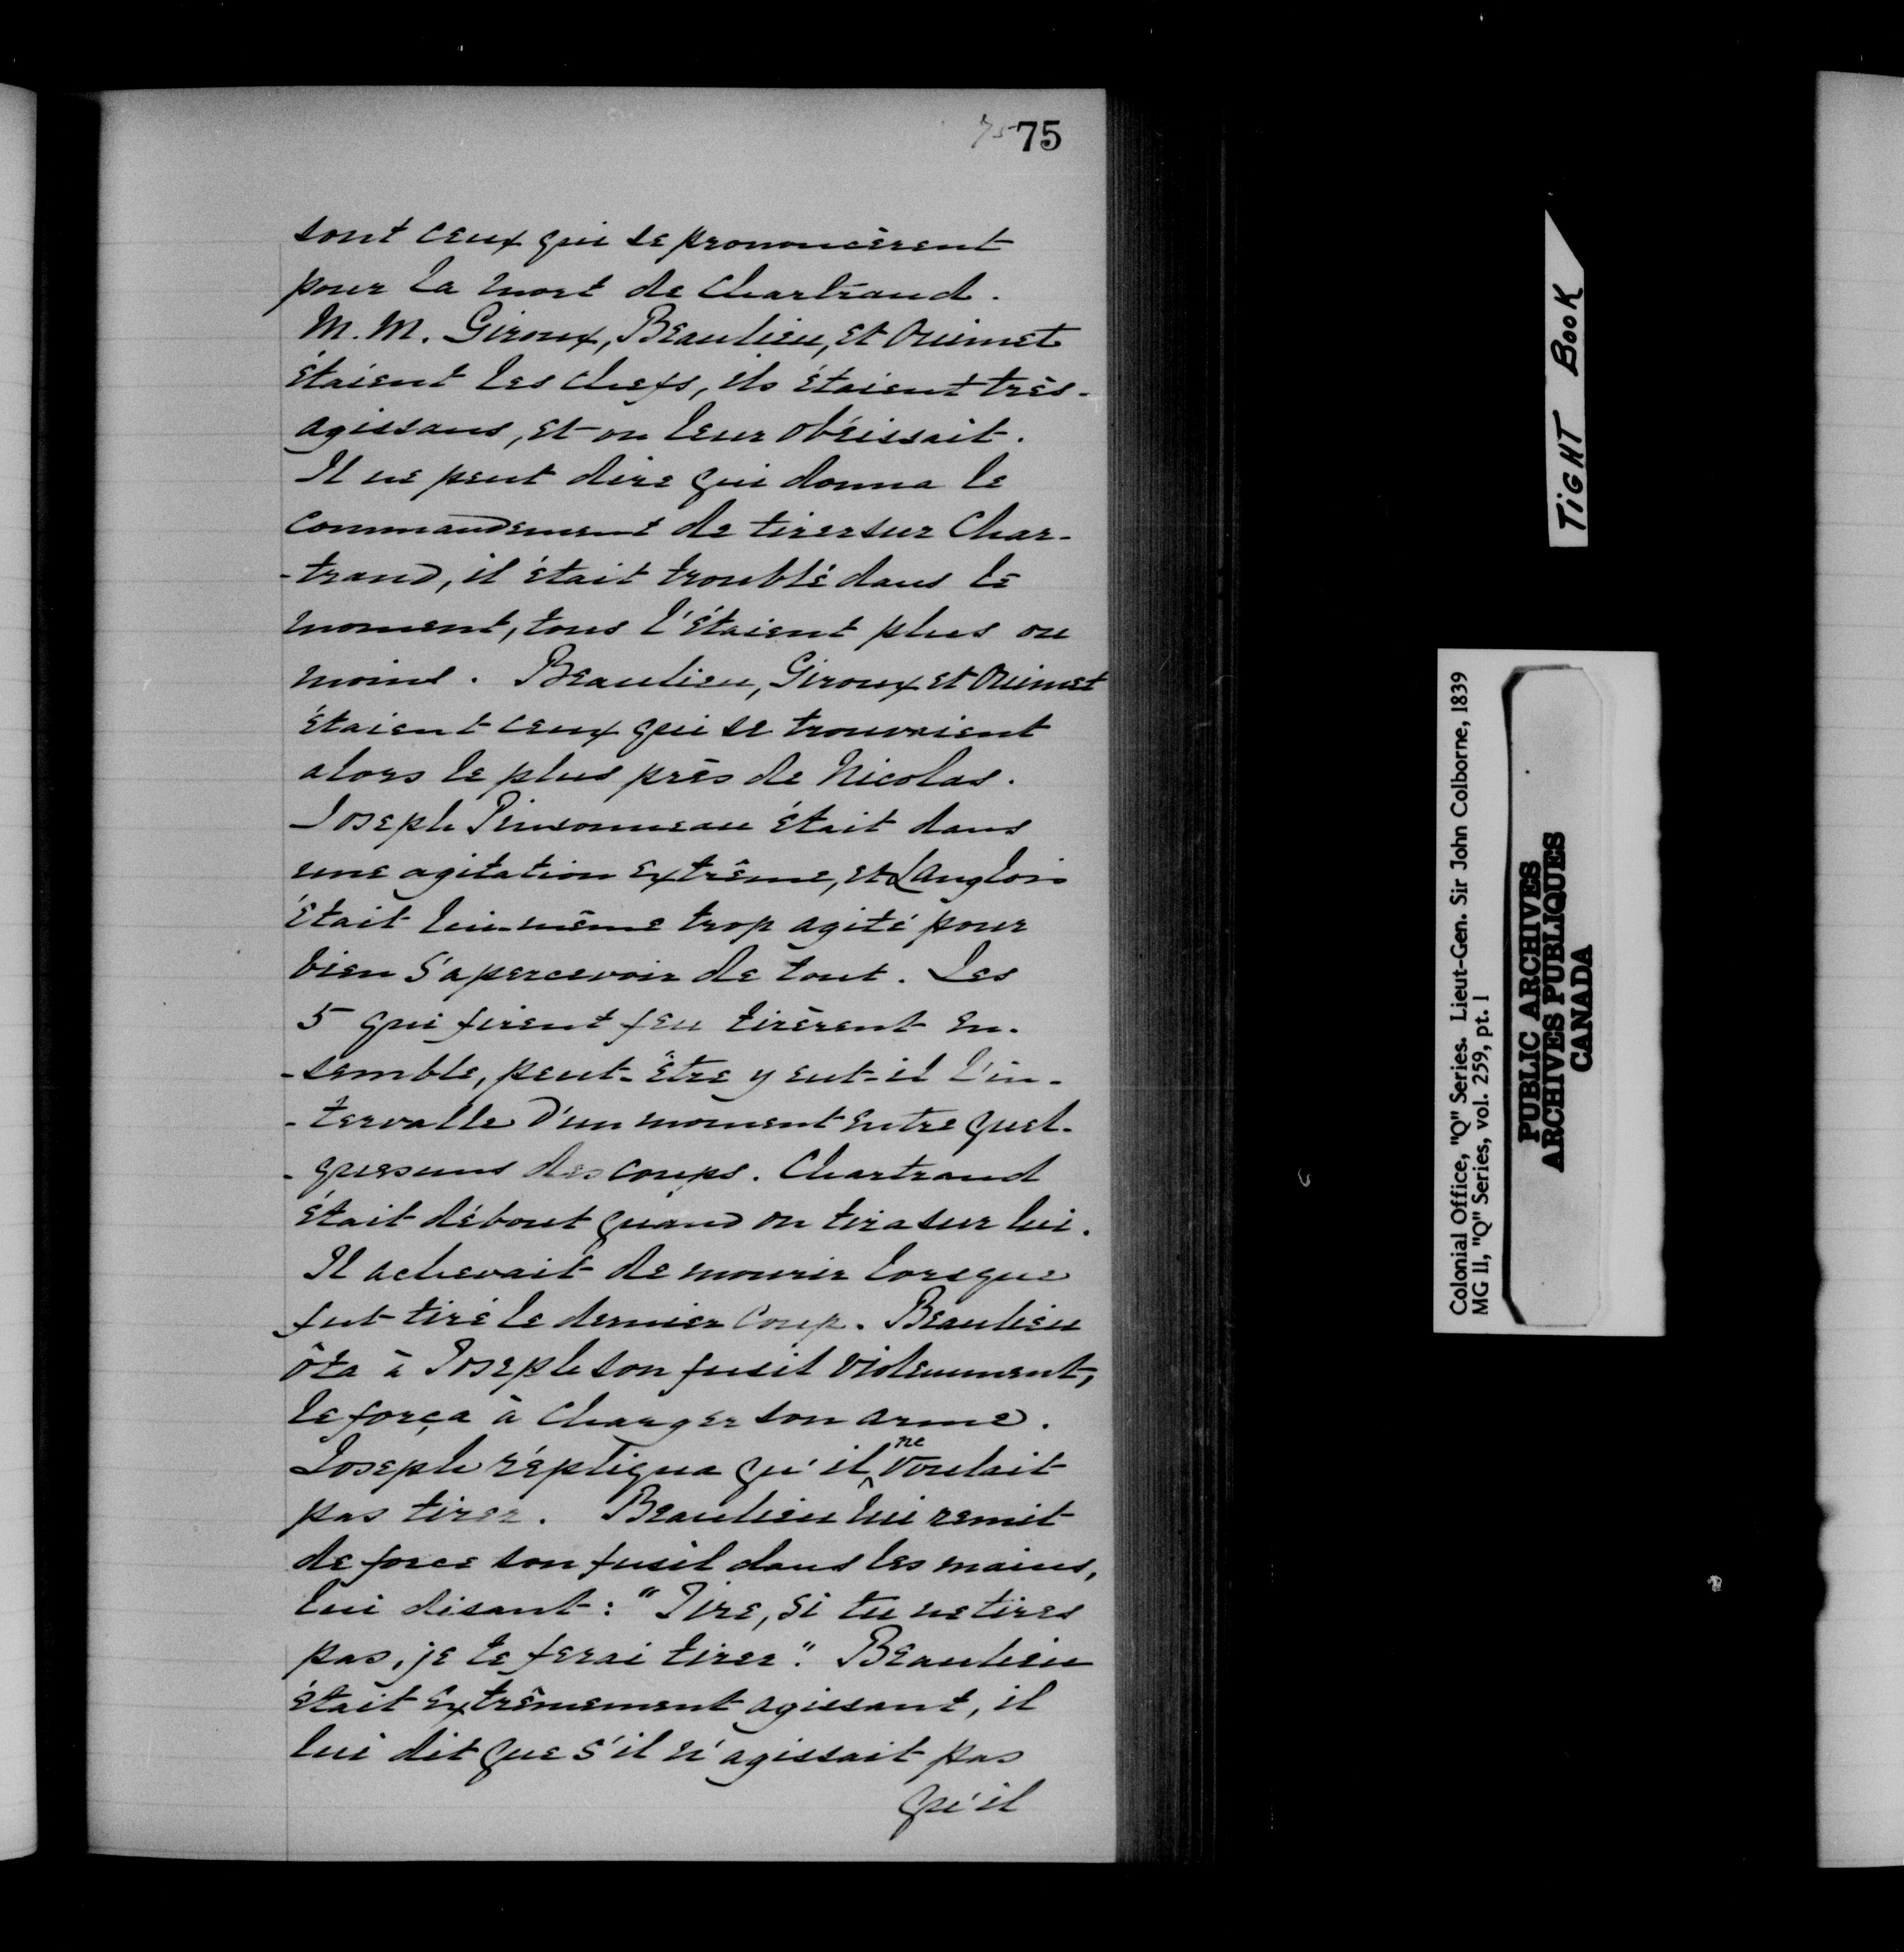 75 75
sont ceux qui se prononcèrent
pour la mort de Chartrand.
M. M. Giroux, Beaulieu, et Ouimet
étaient les chefs, ils étaient très-
agissans, et on leur obéissait.
Il ne peut dire qui donna le
commandement de tirer sur Char-
-trand, il était troublé dans le
moment, tous l'étaient plus ou
moins. Beaulieu, Giroux et Ouimet
étaient ceux qui se trouvaient
alors le plus près de Nicolas.
Joseph Pinsonneau était dans
une agitation extrême, et Langlois
était lui-même trop agité pour
bien s'apercevoir de tout. Les
5 qui firent feu tirèrent en-
-semble, peut-être y eut-il l'in-
-tervalle d'un moment entre quel-
-quesuns des coups. Chartrand
était débout quand on tira sur lui.
Il achevait de mourir lorsque
fut tiré le dernier coup. Beaulieu
ôta à Joseph son fusil violemment,
le força à charger son arme.
Joseph répliqua qu'il ne voulait
pas tirer. Beaulieu lui remit
de force son fusil dans les mains,
lui disant: "Tire, si tu ne tires
pas, je te ferai tirer." Beaulieu
était extrêmement agissant, il
lui dit que s'il n'agissait pas
qu'il
TIGHT BOOK
Colonial Office, "Q" Series. Lieut-Gen. Sir John Colborne, 1839
MG 11, "Q" Series, vol. 259, pt. 1
PUBLIC ARCHIVES
ARCHIVES PUBLIQUES
CANADA